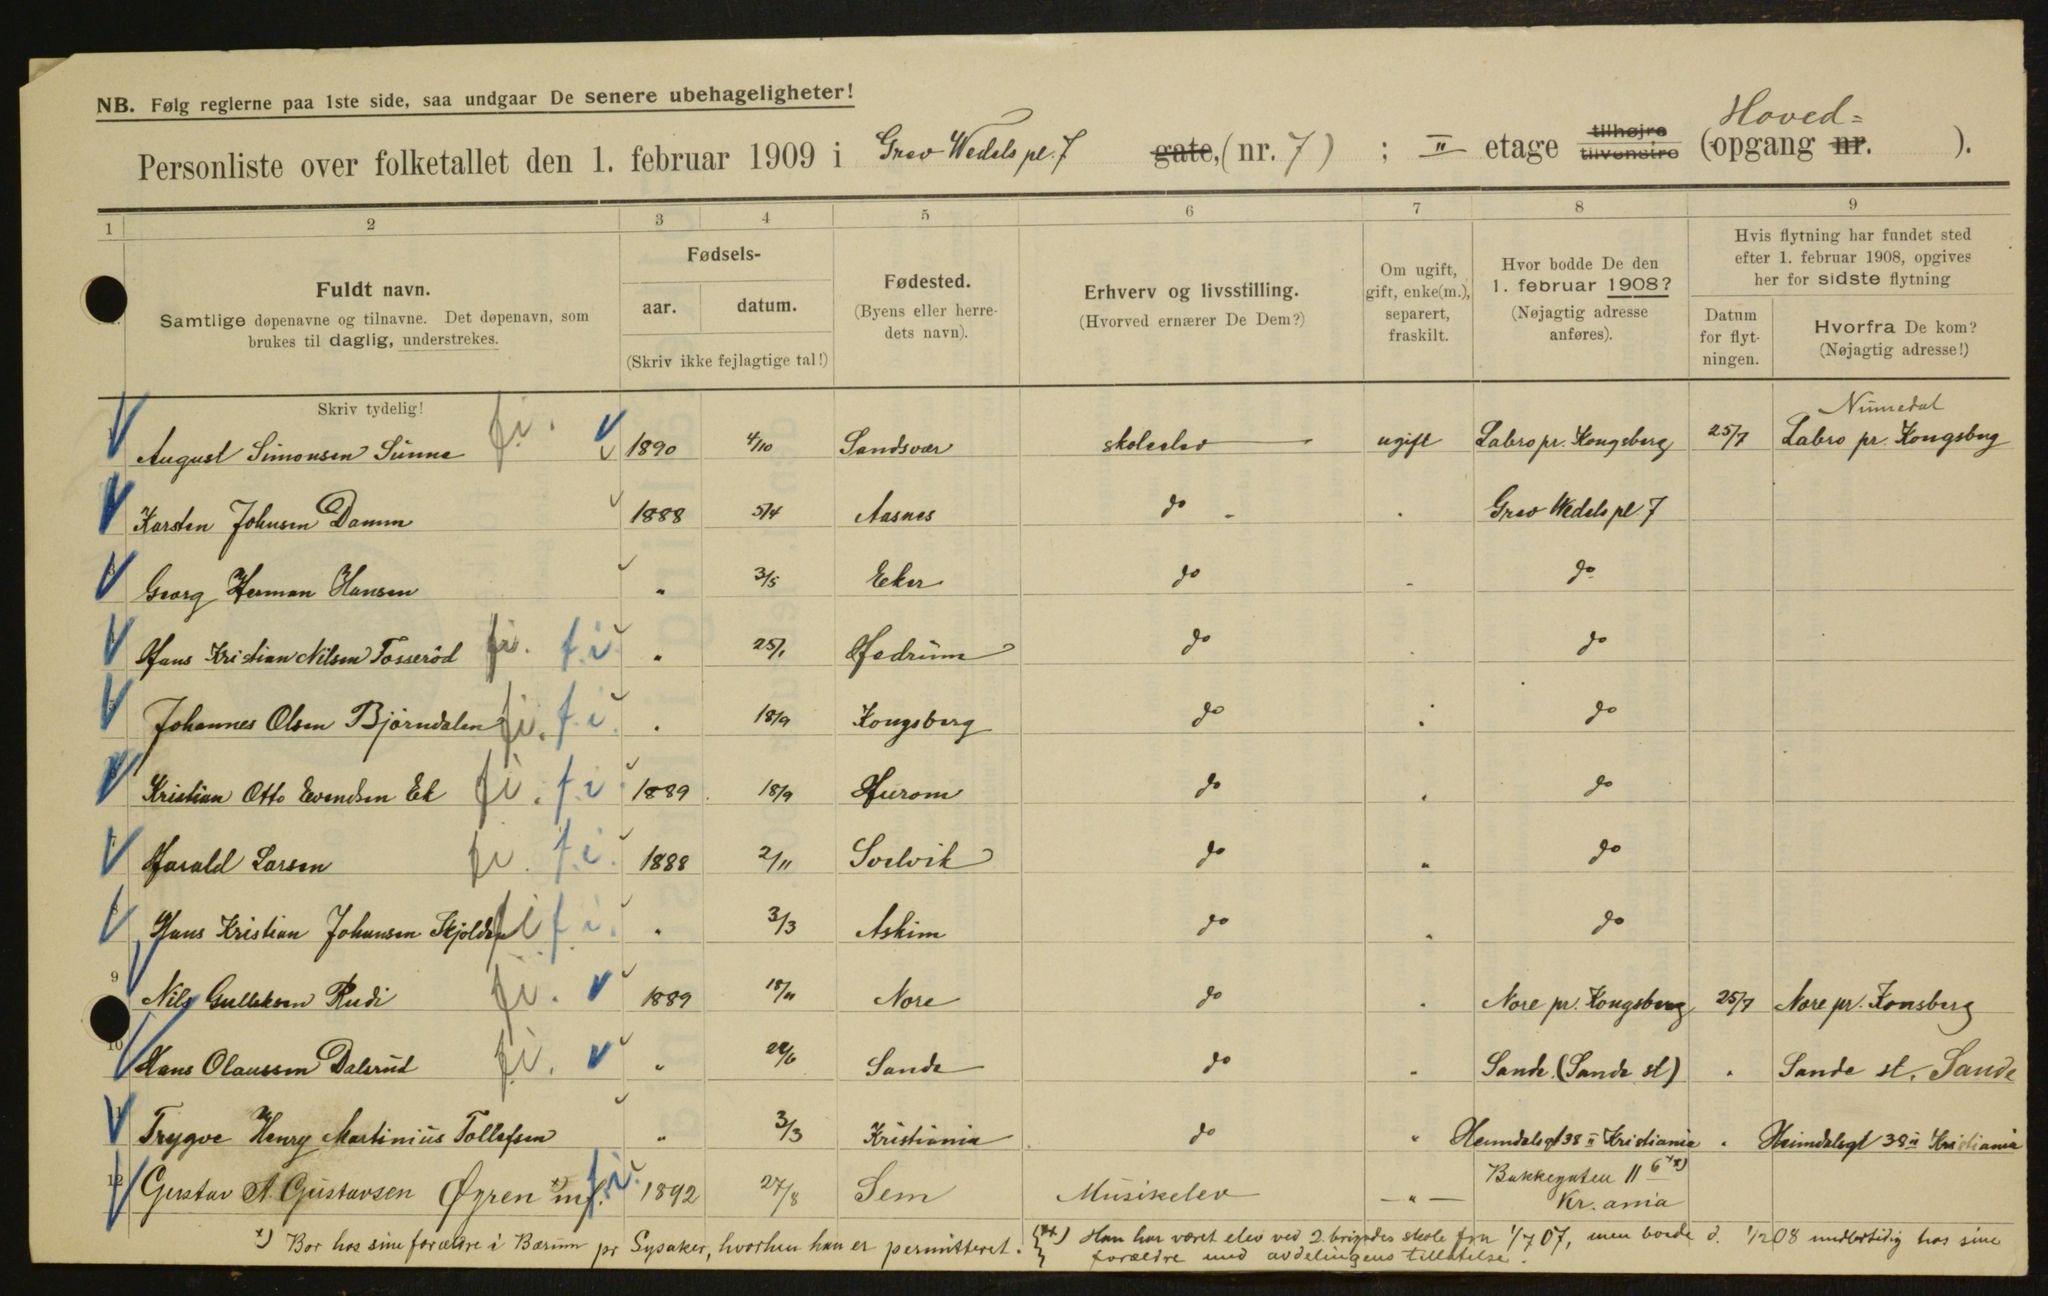 NB. Følg reglerne paa 1ste side, saa undgaar De senere ubehageligheter!
Personliste over folketallet den 1. februar 1909 i Grev Wedels pl. 7 gate, (nr. 7) ; II etage tilhøjre tilvenstre (Hoved= opgang nr. ).
1 2 3 4 5 6 7 8 9
Fuldt navn.
Samtlige døpenavne og tilnavne. Det døpenavn, som
brukes til daglig, understrekes.
Skriv tydelig!
Fødsels-
aar. datum.
(Skriv ikke fejlagtige tal!)
Fødested.
(Byens eller herre-
dets navn).
Erhverv og livsstilling.
(Hvorved ernærer De Dem?)
Om ugift,
gift, enke(m.),
separert,
fraskilt.
Hvor bodde De den
1. februar 1908?
(Nøjagtig adresse
anføres).
Hvis flytning har fundet sted
efter 1. februar 1908, opgives
her for sidste flytning
Datum
for flyt-
ningen.
Hvorfra De kom?
(Nøjagtig adresse!)
Numedal
August Simonsen Sunne fi. 1890 4/10 Sandsvær skoleelev ugift Labro pr. Kongsberg 25/7 Labro pr. Kongsberg
Karsten Johnsen Damm 1888 5/4 Aasnes do - . Grev Wedels pl. 7
3 Georg Herman Hansen " 3/5 Eker do - do
4 Hans Kristian Nilsen Tosserød fi. f.i. " 25/1 Hedrum do . do
5 Johannes Olsen Bjørndalen fi. f.i. . 18/9 Kongsberg do . do
6 Kristian Otto Evendsen Ek fi. f.i. 1889 18/9 Hurom do . do
7 Harald Larsen fi. f.i. 1888 2/11 Svelvik do " do
8 Hans Kristian Johansen fi f.i. " 3/3 Askim do " do
9 Nils Gulliksen Rudi fi. 1889 18/11 Nore do . Nore pr. Kongsberg 25/7 Nore pr. Konsberg
10 Hans Olaussen Dalsrud fi. " Sande do " Sande (Sande st) . Sande st. Sande
11 Trygve Henry Martinius Tollefsen " 3/3 Kristiania do " Heimdalsgt 38 II Kristiania " Heimdalsgt 38 II Kristiania
12 Gustav A. Gustavsen Øyren x) mf. f.i. 1892 27/8 Sem Musikelev — " — Bakkegaten 11 6 xx)
Kr.ania
x) Bor hos sine forældre i Bærum pr Lysaker, hvorhen han er permitteret.
xx) Han har været elev ved 2. brigades skole fra 1/7 07, men boede d. 1/2 08 midlertidig hos sine
forældre med avdelingens tilladelse.